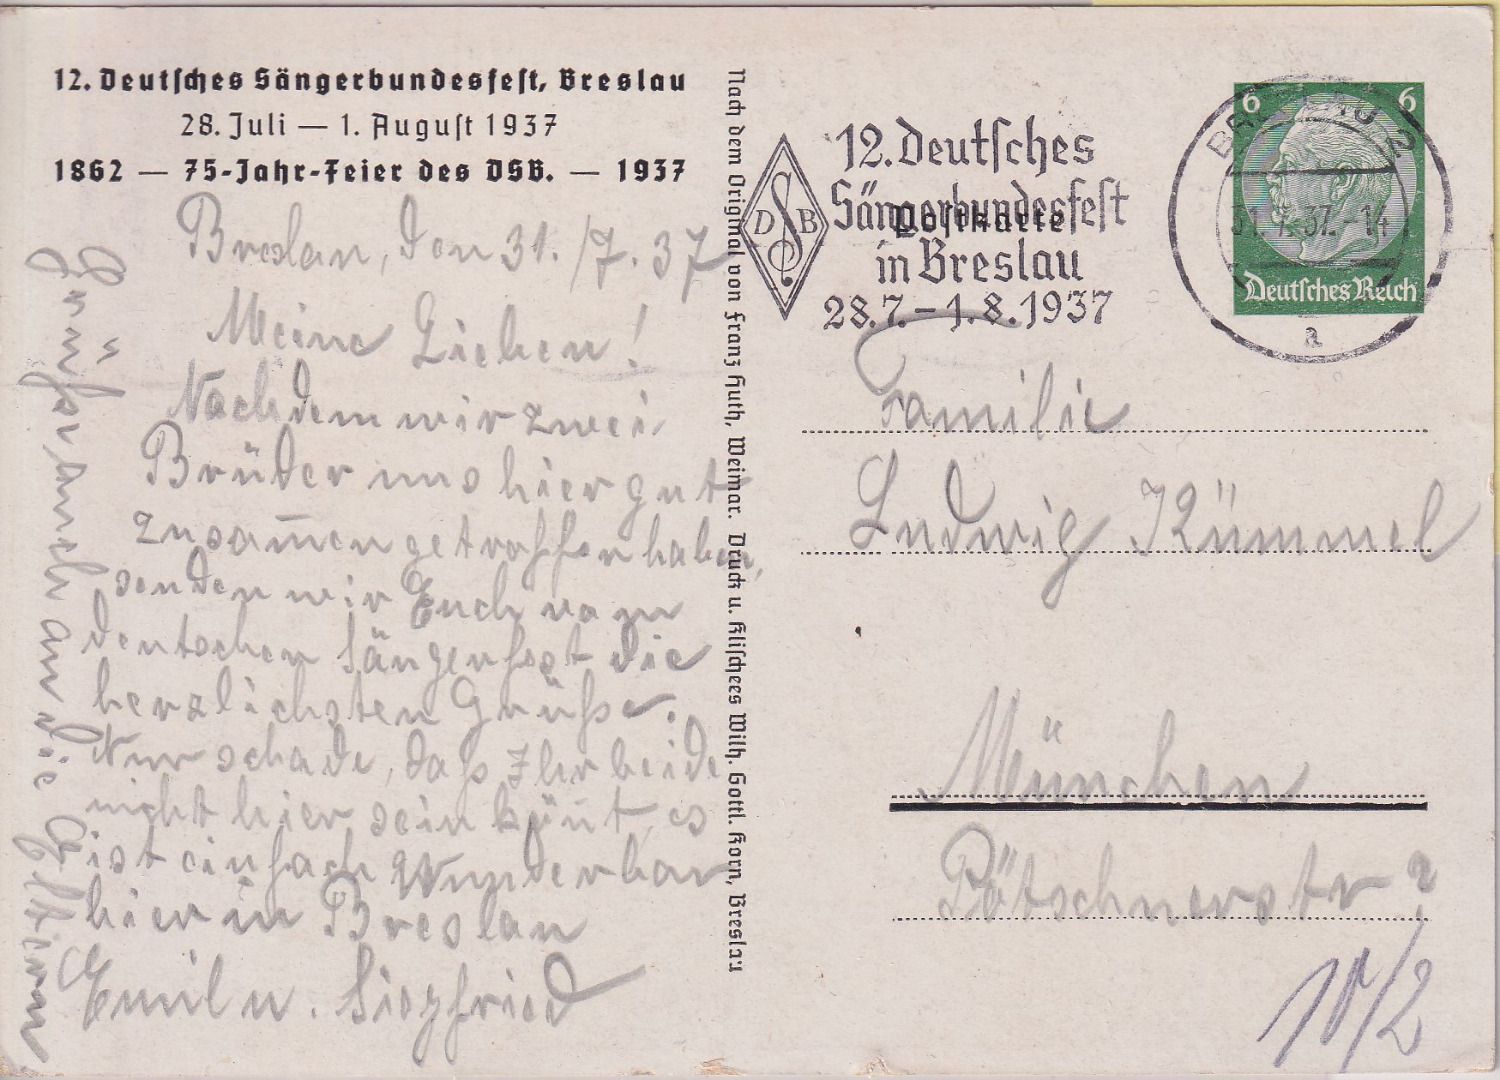 12. Deutsches Sängerbundesfest, Breslau
28. Juli — 1. August 1937
1862 — 75-Jahr-Feier des DSB. — 1937
Breslau, den 31./7.37
Meine Lieben!
Nachdem wir zwei
Brüder uns hier gut
zusam̅en getroffen haben,
senden wir Euch vom
deutschen Sängerfest die
herzlichsten Grüße.
Nur schade, daß Ihr beide
nicht hier sein kön̅t, es
ist einfach wunderbar
hier in Breslau
Emil u. Siegfried
Grüße auch an die Eltern
Nach dem Original von Franz Huth, Weimar. Druck u. Klischees Wilh. Gottl. Korn, Breslau
D S B
12. Deutsches
Sängerbundesfest
in Breslau
28.7.–1.8.1937
Postkarte
BRESLAU 2
31.7.37.-14
a
6 6
Deutsches Reich
Familie
Ludwig Kümmel
München
Pötschnerstr ?
10/2